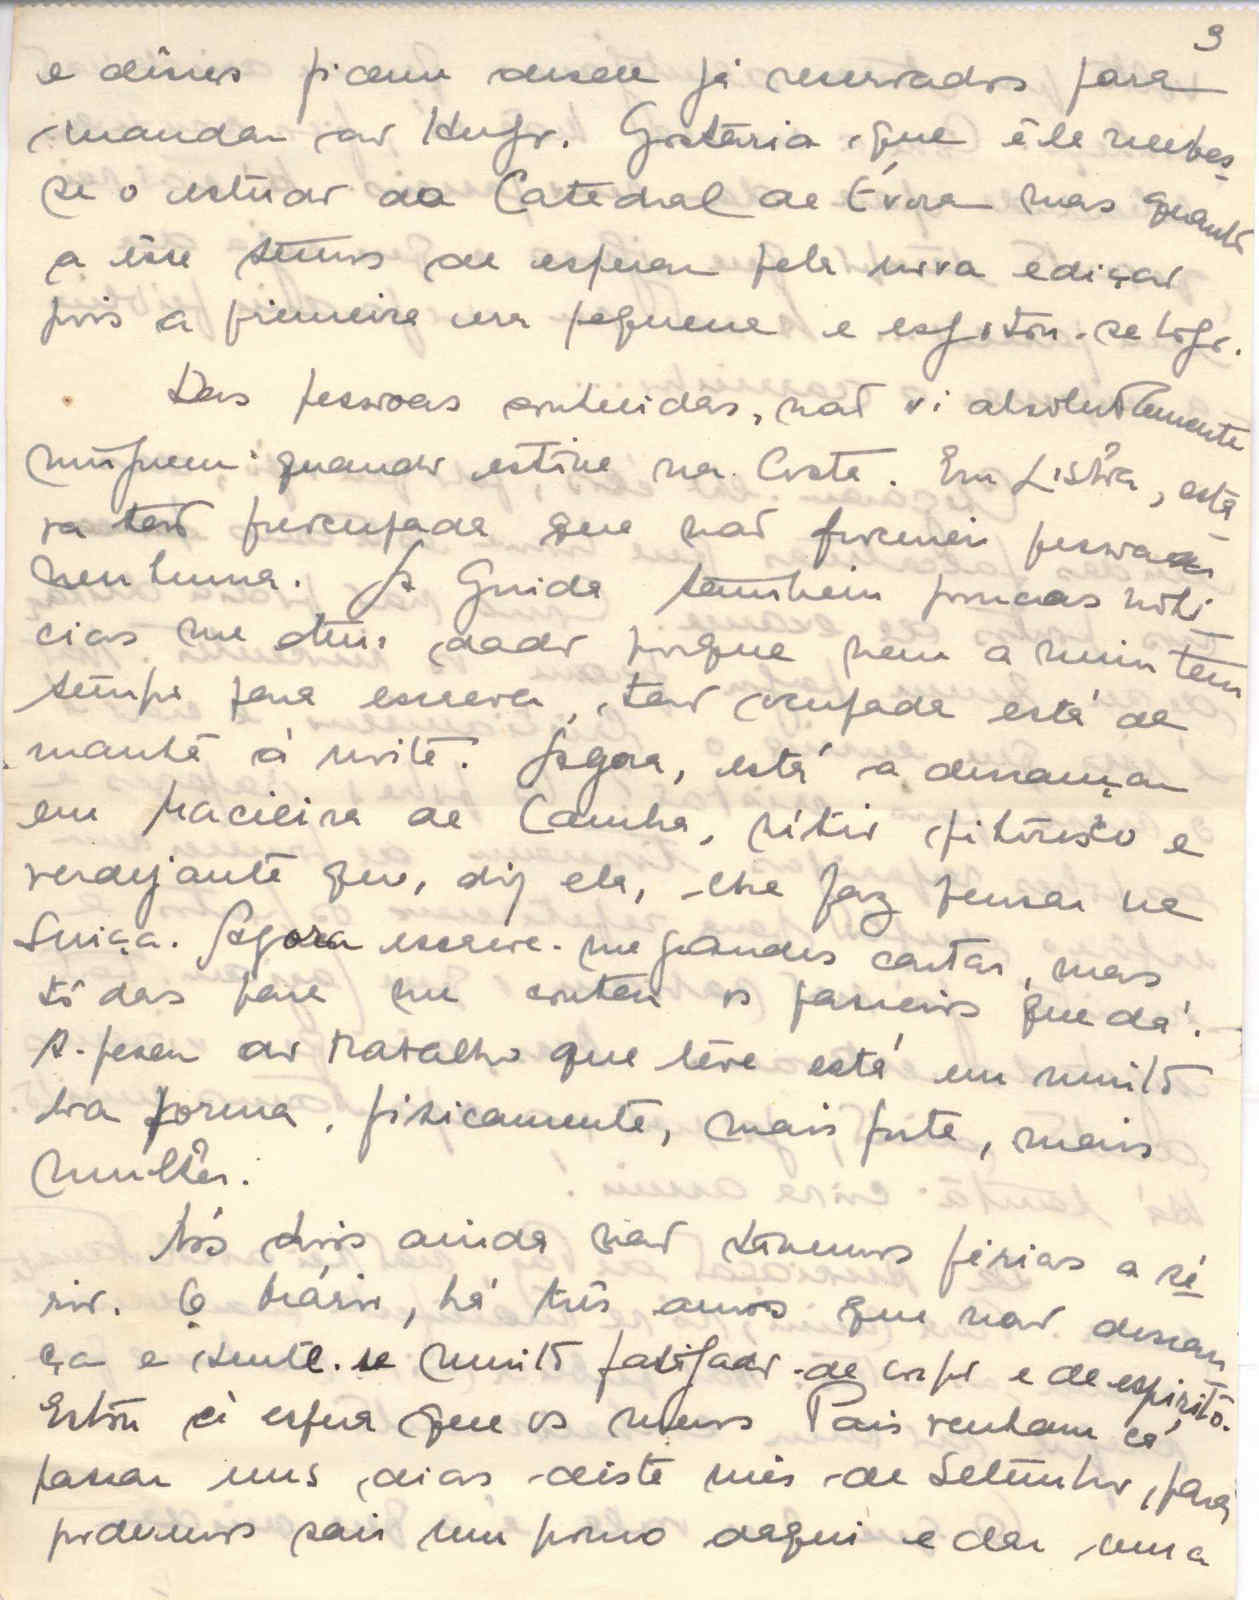 3
e dêsses ficam desde já reservados para
mandar ao Hugo. Gostaria que êle recebes-
se o estudo da Catedral de Évora mas quanto
a êsse temos de esperar pela nova edição
pois a primeira era pequena e esgotou-se logo.
Das pessoas conhecidas, não vi absolutamente
ninguem quando estive na Costa. Em Lisbôa, esta
va tão preocupada que não procurei pessoa
nenhuma. A Guida tambem poucas notí-
cias me tem dado porque nem a mim tem
tempo para escrever, tão ocupada está de
manhã á noite. Agora, está a descançar
em Macieira de Cambra, sítio pitoresco e
verdejante que, diz ela, lhe faz pensar na
Suiça. Agora escreve-me grandes cartas, mas
tôdas para me contar os passeios que dá.
A-pesar do trabalho que têve está em muito
bôa forma, fisicamente, mais forte, mais
mulhêr.
Nós dois ainda não tivemos férias a sé-
rio. O Mário, há três anos que não descan-
ça e sente-se muito fatigado de corpo e de espirito.
Estou á espera que os meus Pais venham cá
passar uns dias dêste mês de Setembro, para
podermos sair um pouco daqui e dar uma